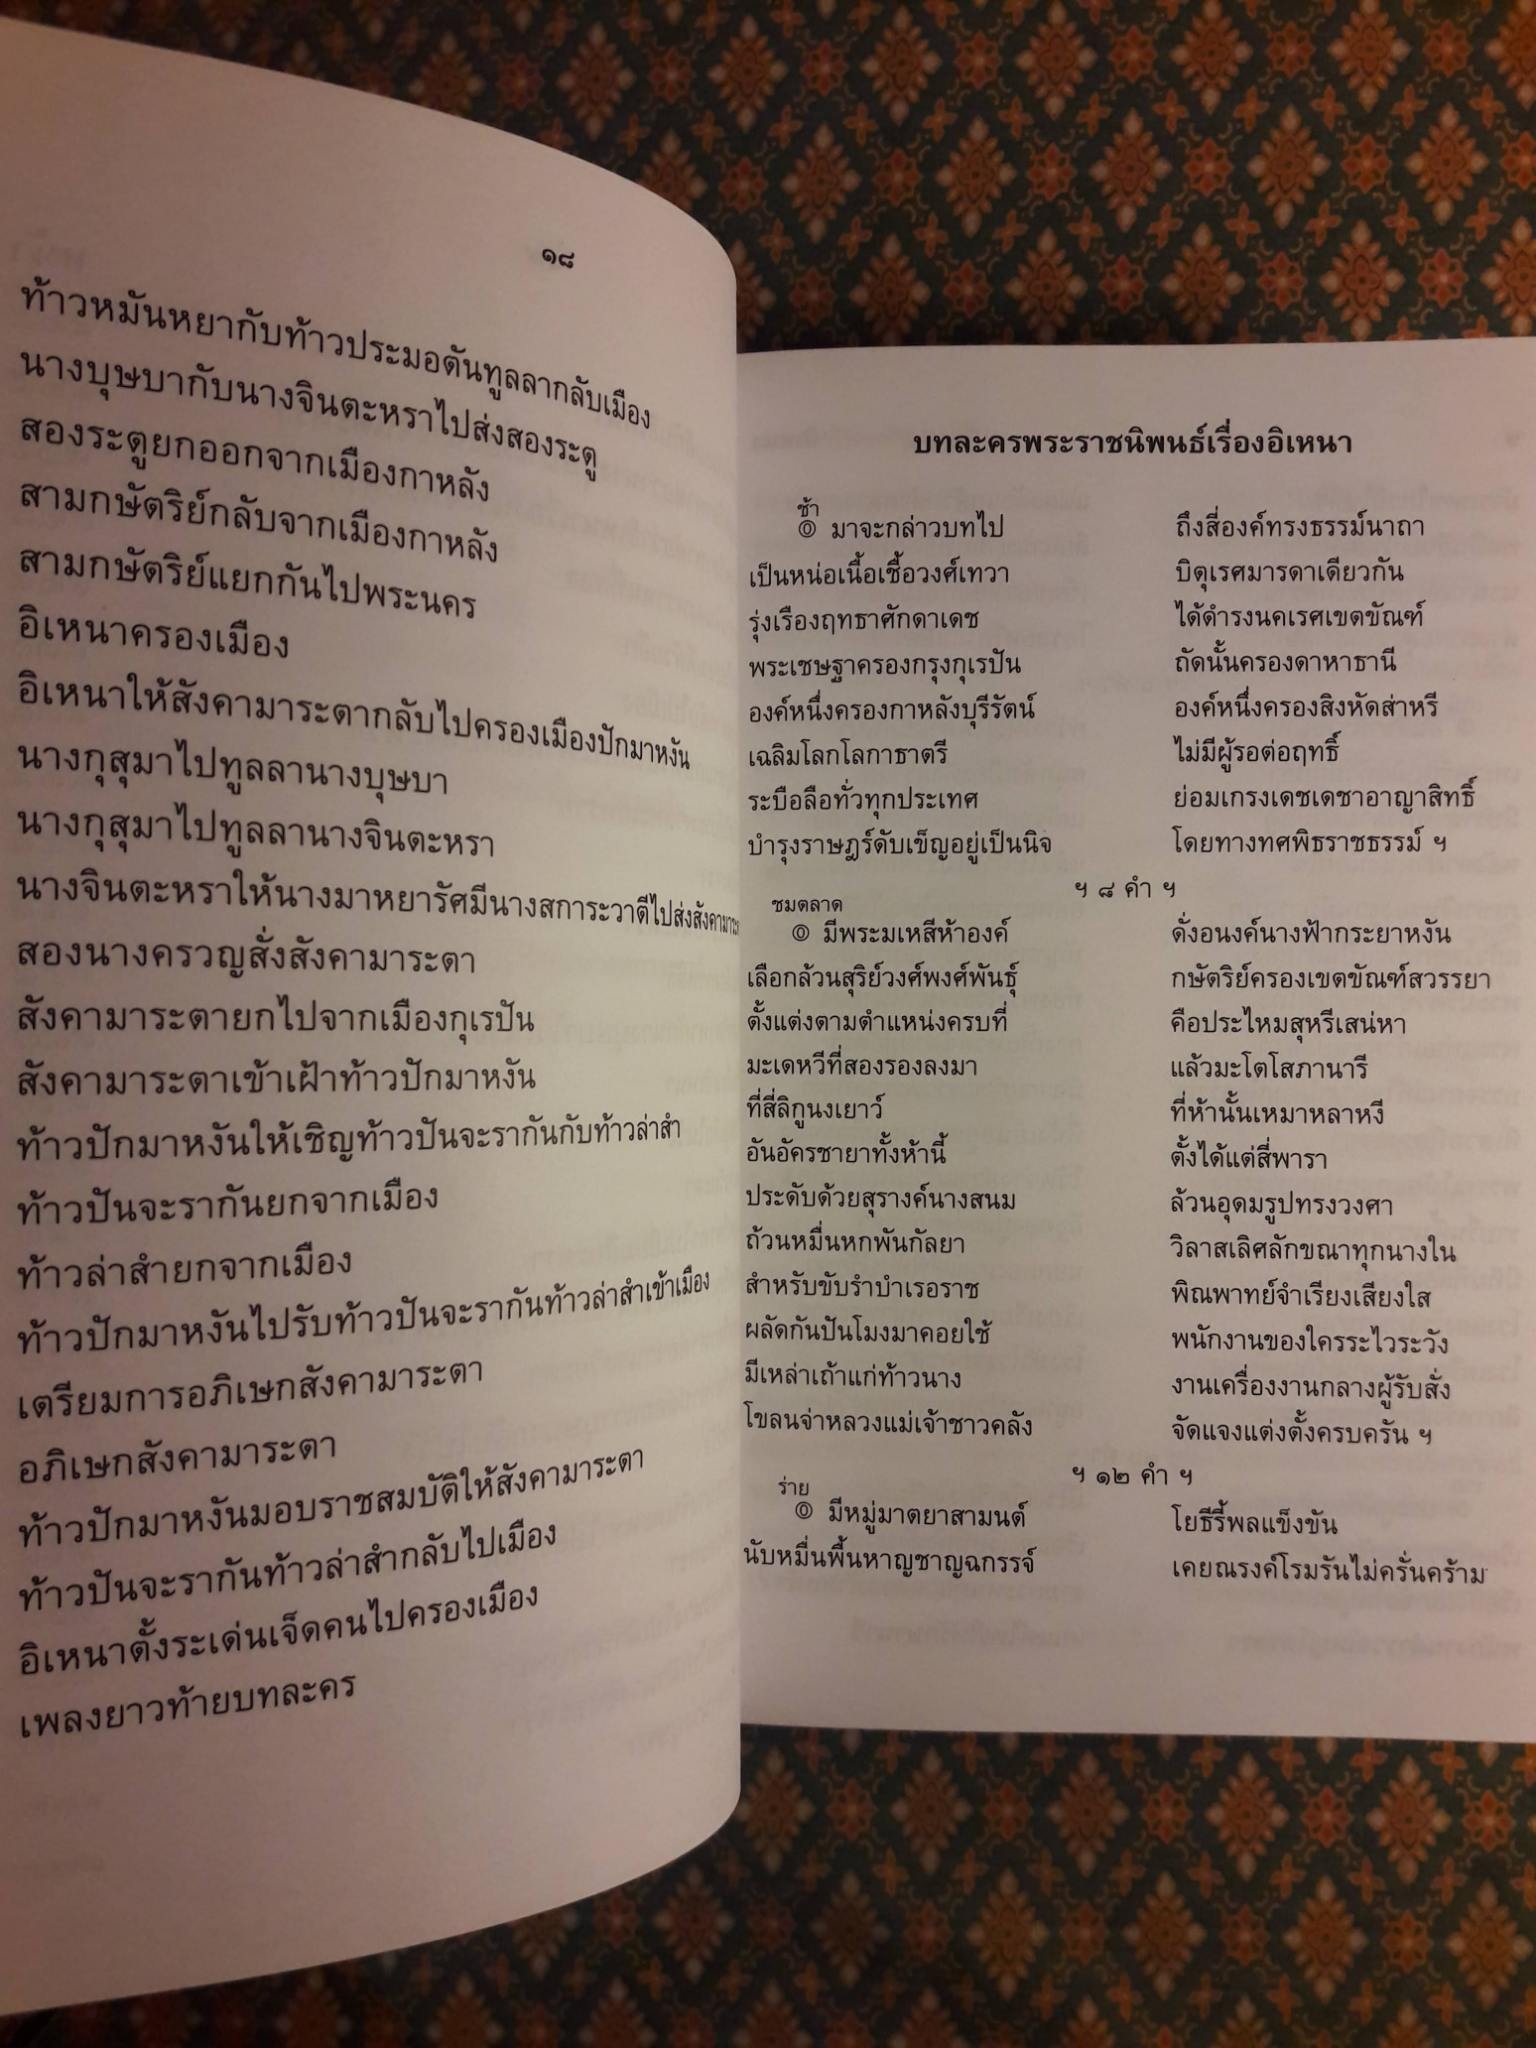 ๑๘
ท้าวหมันหยากับท้าวประมอตันทูลลากลับเมือง
นางบุษบากับนางจินตะหราไปส่งสองระตู
สองระตูยกออกจากเมืองกาหลัง
สามกษัตริย์กลับจากเมืองกาหลัง
สามกษัตริย์แยกกันไปพระนคร
อิเหนาครองเมือง
อิเหนาให้สังคามาระตากลับไปครองเมืองปักมาหงัน
นางกุสุมาไปทูลลานางบุษบา
นางกุสุมาไปทูลลานางจินตะหรา
นางจินตะหราให้นางมาหยารัศมีนางสการะวาตีไปส่งสังคามาระ
สองนางครวญสั่งสังคามาระตา
สังคามาระตายกไปจากเมืองกุเรปัน
สังคามาระตาเข้าเฝ้าท้าวปักมาหงัน
ท้าวปักมาหงันให้เชิญท้าวปันจะรากันกับท้าวล่าสำ
ท้าวปันจะรากันยกจากเมือง
ท้าวล่าสำยกจากเมือง
ท้าวปักมาหงันไปรับท้าวปันจะรากันท้าวล่าสำเข้าเมือง
เตรียมการอภิเษกสังคามาระตา
อภิเษกสังคามาระตา
ท้าวปักมาหงันมอบราชสมบัติให้สังคามาระตา
ท้าวปันจะรากันท้าวล่าสำกลับไปเมือง
อิเหนาตั้งระเด่นเจ็ดคนไปครองเมือง
เพลงยาวท้ายบทละคร
บทละครพระราชนิพนธ์เรื่องอิเหนา
ช้า
๏ มาจะกล่าวบทไป ถึงสี่องค์ทรงธรรม์นาถา
เป็นหน่อเนื้อเชื้อวงศ์เทวา บิตุเรศมารดาเดียวกัน
รุ่งเรืองฤทธาศักดาเดช ได้ดำรงนคเรศเขตขัณฑ์
พระเชษฐาครองกรุงกุเรปัน ถัดนั้นครองดาหาธานี
องค์หนึ่งครองกาหลังบุรีรัตน์ องค์หนึ่งครองสิงหัดส่าหรี
เฉลิมโลกโลกาธาตรี ไม่มีผู้รอต่อฤทธิ์
ระบือลือทั่วทุกประเทศ ย่อมเกรงเดชเดชาอาญาสิทธิ์
บำรุงราษฎร์ดับเข็ญอยู่เป็นนิจ โดยทางทศพิธราชธรรม์ ฯ
ฯ ๘ คำ ฯ
ชมตลาด
๏ มีพระมเหสีห้าองค์ ดั่งอนงค์นางฟ้ากระยาหงัน
เลือกล้วนสุริย์วงศ์พงศ์พันธุ์ กษัตริย์ครองเขตขัณฑ์สวรรยา
ตั้งแต่งตามตำแหน่งครบที่ คือประไหมสุหรีเสน่หา
มะเดหวีที่สองรองลงมา แล้วมะโตโสภานารี
ที่สี่ลิกูนงเยาว์ ที่ห้านั้นเหมาหลาหงี
อันอัครชายาทั้งห้านี้ ตั้งได้แต่สี่พารา
ประดับด้วยสุรางค์นางสนม ล้วนอุดมรูปทรงวงศา
ถ้วนหมื่นหกพันกัลยา วิลาสเลิศลักขณาทุกนางใน
สำหรับขับรำบำเรอราช พิณพาทย์จำเรียงเสียงใส
ผลัดกันปันโมงมาคอยใช้ พนักงานของใครระไวระวัง
มีเหล่าเถ้าแก่ท้าวนาง งานเครื่องงานกลางผู้รับสั่ง
โขลนจ่าหลวงแม่เจ้าชาวคลัง จัดแจงแต่งตั้งครบครัน ฯ
ฯ ๑๒ คำ ฯ
ร่าย
๏ มีหมู่มาตยาสามนต์ โยธีรี้พลแข็งขัน
นับหมื่นพื้นหาญชาญฉกรรจ์ เคยณรงค์โรมรันไม่ครั่นคร้าม